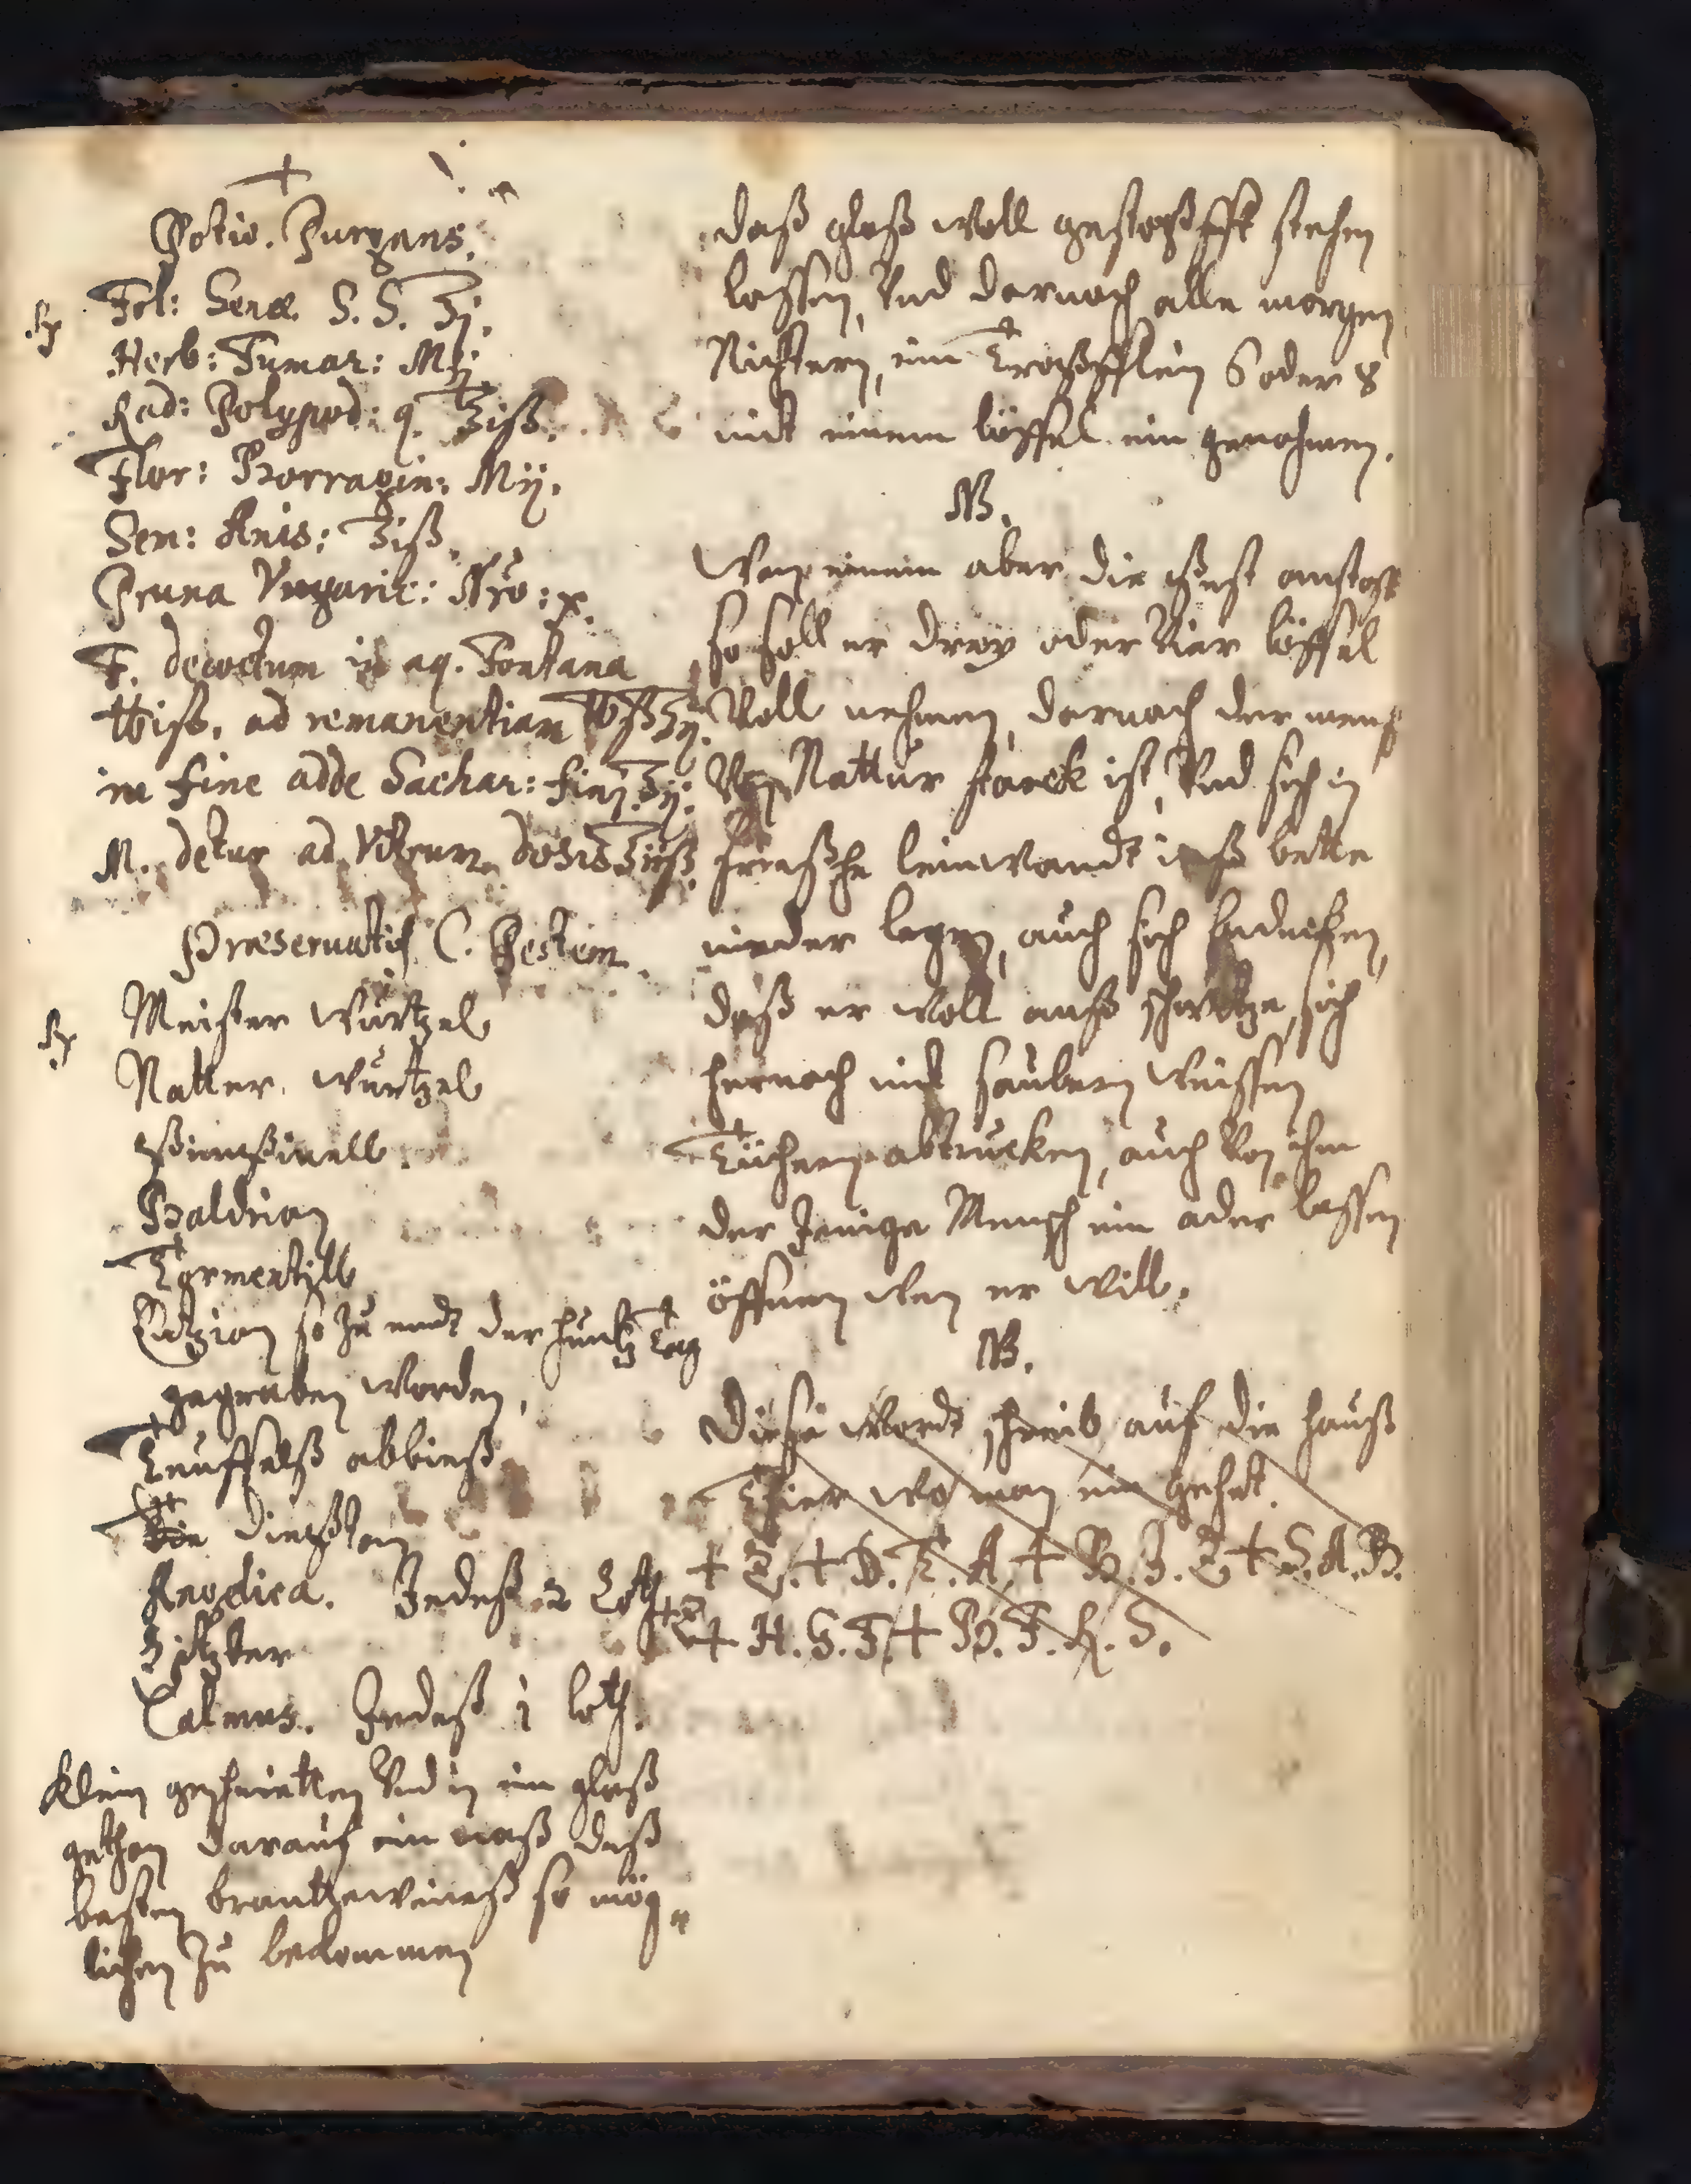 Potio. Purgans.
℞ Fol: Senæ. S. S. ℥j.
Herb: Fumar: Mj
Rad: Polypod: q. ℥iß.
Flor: Borragin: Mij.
Sem: Anis: ʒiß.
Pruna Vngaric: Nro: x.
F. decoctum in aq. Fontana
℔iß. ad remanentiam
in fine adde Sachar: fin: ℥ij.
M. detur ad Vitrum. dosis
Præseruatif C. Pestem.
℞ Meister wurtzel
Natter wurtzel
Baldrian
Tormentill
Entzian so Zu endt der hundtz Tag
gegraben worden,
Teuffelß abbieß
Die dießtam
Angelica. Jedeß 2 Loth
Zittber
Calmus. Jedeß 1 loth.
klein geschnietten Vnd in ein glaß
gethan darauf ein maß deß
besten brantteweineß so mög„
lichen Zu bekommen
daß glaß woll gestopfft stehen
lassen, Vnd darnach alle morgen
Nichtern, ein Tropfflein 6 oder 8
mit einem löffel ein genohmen.
NB.
Wan einem aber die pest anstost
so soll er drey oder Vier löffel
Voll nehmen, darnach der mensch
Von Nattur starck ist, Vnd sich in
frießhe leinwandt inß bette
nieder legen, auch sich bedecken,
daß er woll auß schwitze, sich
hernach mit saubern weissen
Tüchern abtrucken, auch Von ihm
der Jenige Mensch ein ader lassen
öffnen wen er will.
NB.
Diese wordt schreib auf die hauß
Thier wo man ein gehet.
+ Z. + D. I. A. + B. I. Z + S. A. B.
+ Z + H. G. F. + B. F. R. S.